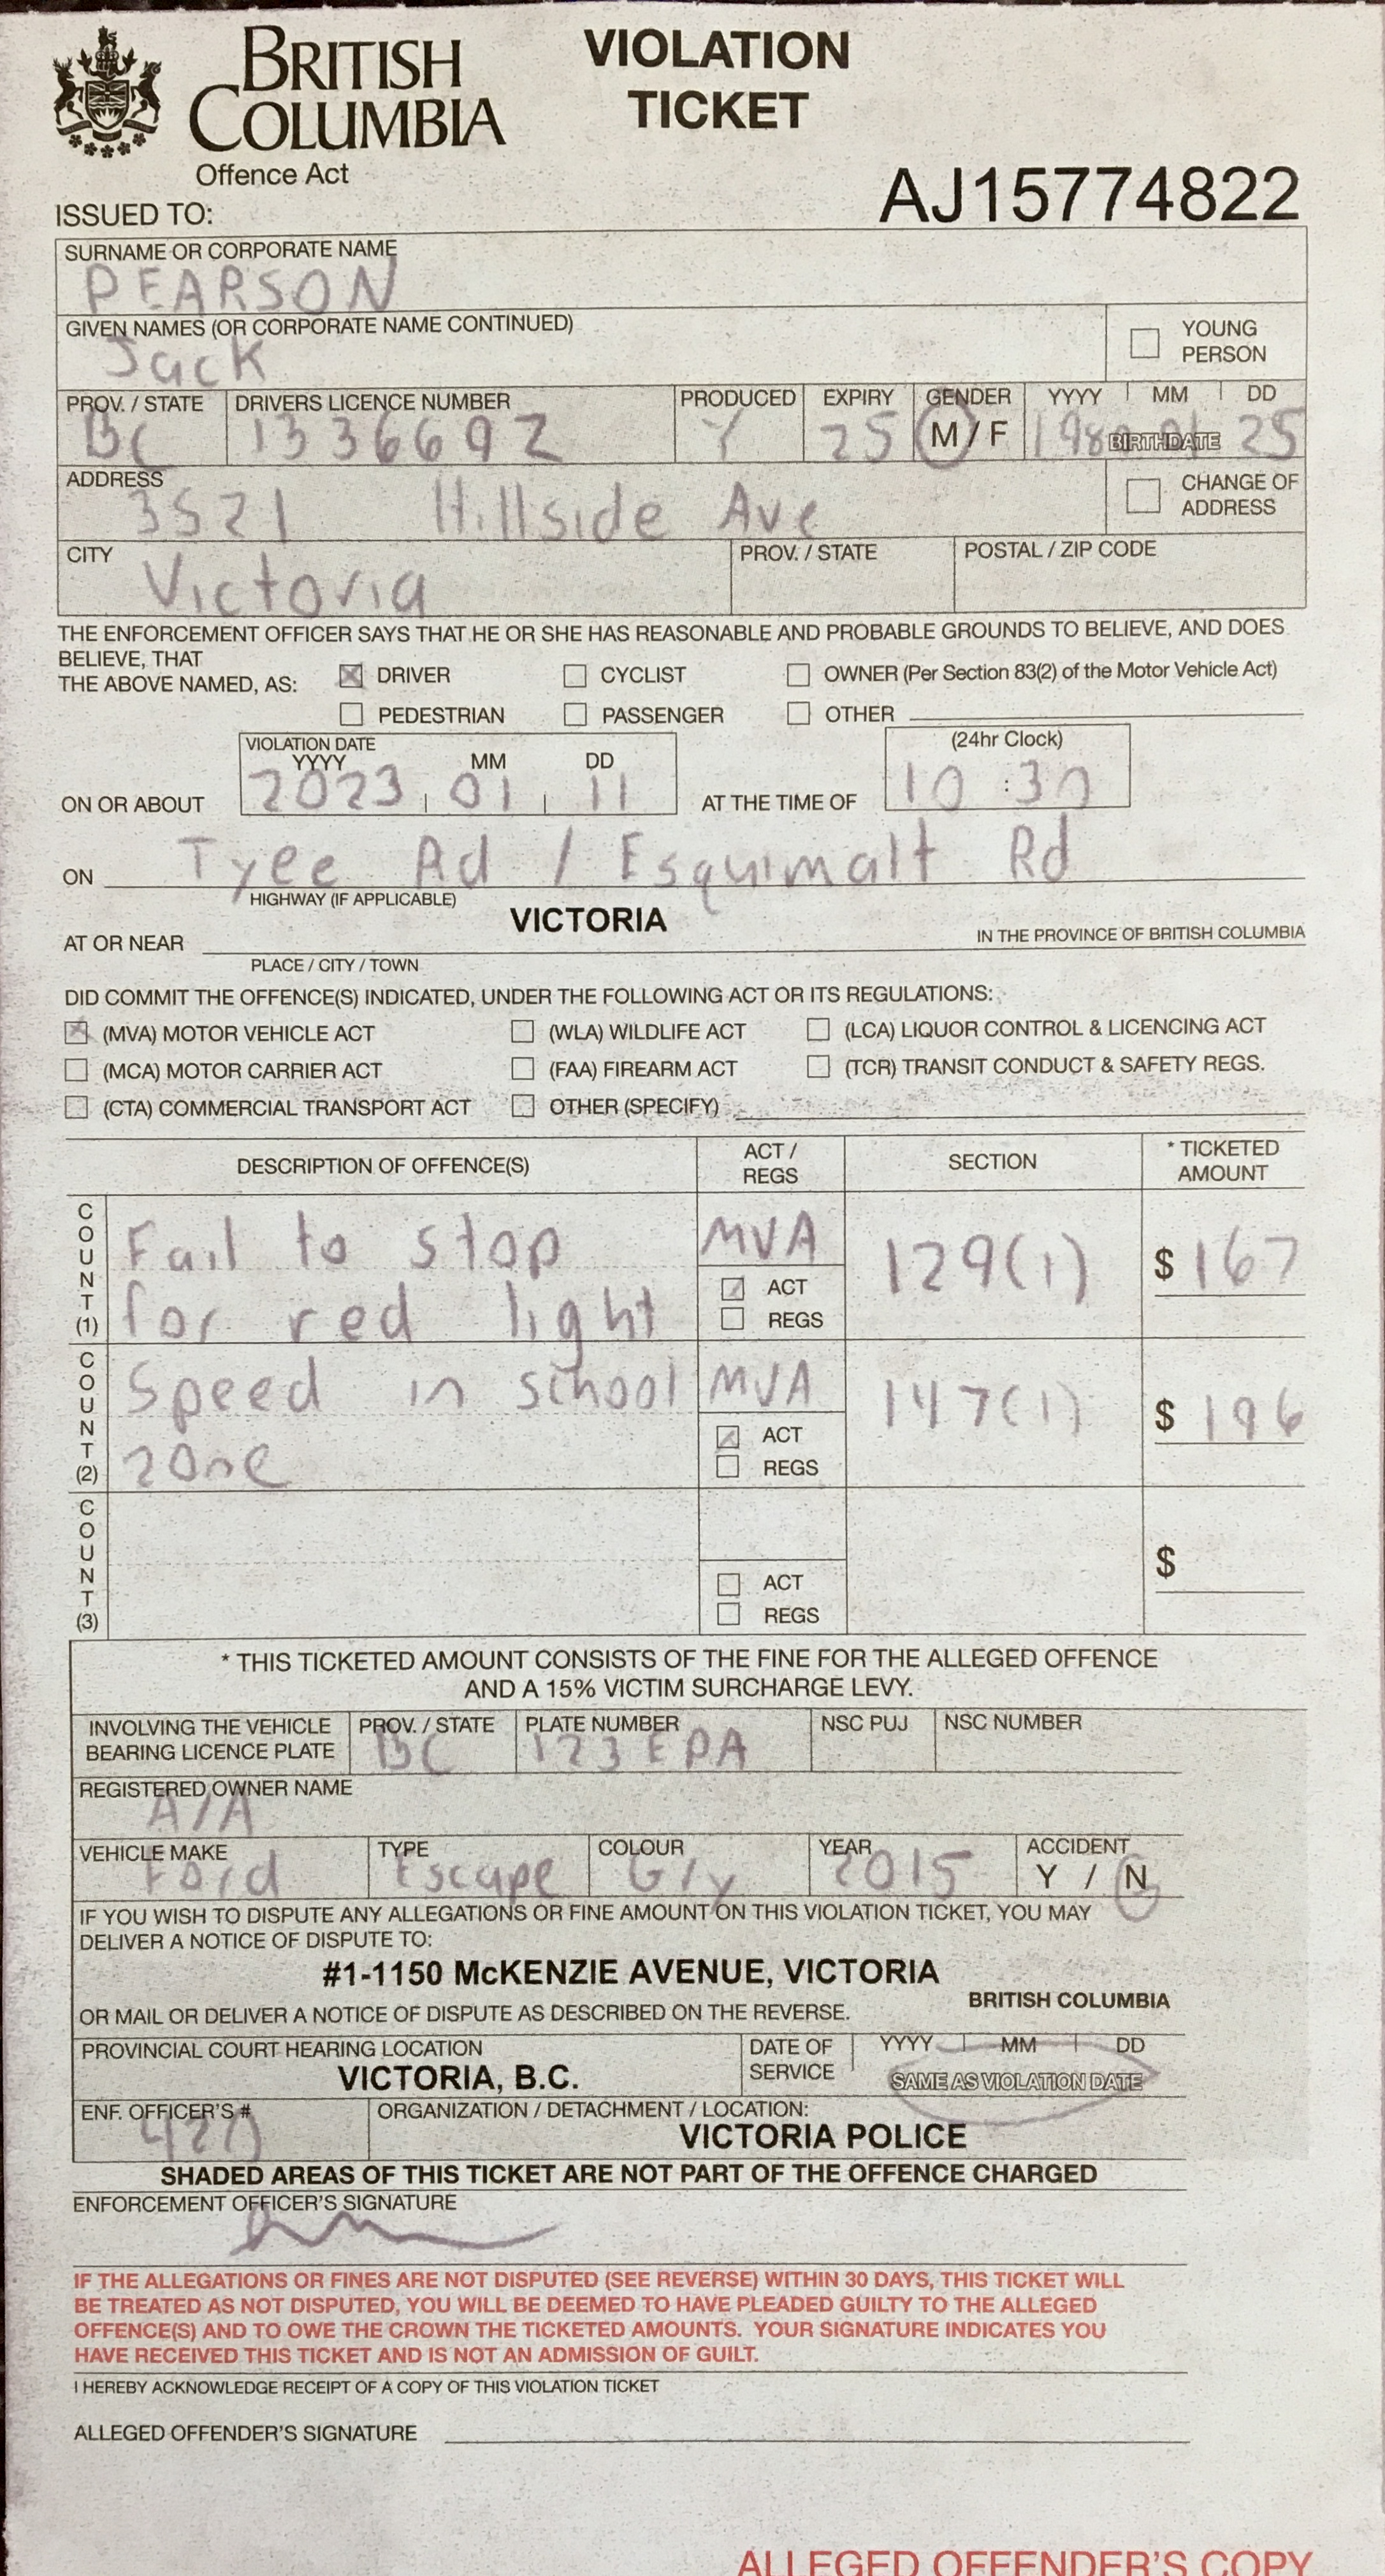 BRITISH COLUMBIA
Offence Act
VIOLATION TICKET
AJ15774822
ISSUED TO:
SURNAME OR CORPORATE NAME
PEARSON
GIVEN NAMES (OR CORPORATE NAME CONTINUED)
Jack
YOUNG PERSON
PROV. / STATE DRIVERS LICENCE NUMBER PRODUCED EXPIRY GENDER YYYY MM DD
BC 1336692 Y 25 M / F 1980 01 25
BIRTHDATE
ADDRESS
3521 Hillside Ave
CHANGE OF ADDRESS
CITY PROV. / STATE POSTAL / ZIP CODE
Victoria
THE ENFORCEMENT OFFICER SAYS THAT HE OR SHE HAS REASONABLE AND PROBABLE GROUNDS TO BELIEVE, AND DOES
BELIEVE, THAT
THE ABOVE NAMED, AS: DRIVER CYCLIST OWNER (Per Section 83(2) of the Motor Vehicle Act)
PEDESTRIAN PASSENGER OTHER
VIOLATION DATE
YYYY MM DD (24hr Clock)
ON OR ABOUT 2023 01 11 AT THE TIME OF 10:30
ON Tyee Rd / Esquimalt Rd
HIGHWAY (IF APPLICABLE)
AT OR NEAR VICTORIA IN THE PROVINCE OF BRITISH COLUMBIA
PLACE / CITY / TOWN
DID COMMIT THE OFFENCE(S) INDICATED, UNDER THE FOLLOWING ACT OR ITS REGULATIONS:
(MVA) MOTOR VEHICLE ACT (WLA) WILDLIFE ACT (LCA) LIQUOR CONTROL & LICENCING ACT
(MCA) MOTOR CARRIER ACT (FAA) FIREARM ACT (TCR) TRANSIT CONDUCT & SAFETY REGS.
(CTA) COMMERCIAL TRANSPORT ACT OTHER (SPECIFY)
DESCRIPTION OF OFFENCE(S) ACT / REGS SECTION * TICKETED AMOUNT
COUNT (1) Fail to stop MVA 129(1) $ 167
for red light ACT REGS
COUNT (2) Speed in school MVA 147(1) $ 196
zone ACT REGS
COUNT (3) ACT REGS $
* THIS TICKETED AMOUNT CONSISTS OF THE FINE FOR THE ALLEGED OFFENCE
AND A 15% VICTIM SURCHARGE LEVY.
INVOLVING THE VEHICLE BEARING LICENCE PLATE PROV. / STATE PLATE NUMBER NSC PUJ NSC NUMBER
BC 123 EPA
REGISTERED OWNER NAME
A/A
VEHICLE MAKE TYPE COLOUR YEAR ACCIDENT
Ford Escape Gry 2015 Y / N
IF YOU WISH TO DISPUTE ANY ALLEGATIONS OR FINE AMOUNT ON THIS VIOLATION TICKET, YOU MAY
DELIVER A NOTICE OF DISPUTE TO:
#1-1150 McKENZIE AVENUE, VICTORIA
BRITISH COLUMBIA
OR MAIL OR DELIVER A NOTICE OF DISPUTE AS DESCRIBED ON THE REVERSE.
PROVINCIAL COURT HEARING LOCATION DATE OF SERVICE YYYY MM DD
VICTORIA, B.C. SAME AS VIOLATION DATE
ENF. OFFICER'S # ORGANIZATION / DETACHMENT / LOCATION:
VICTORIA POLICE
SHADED AREAS OF THIS TICKET ARE NOT PART OF THE OFFENCE CHARGED
ENFORCEMENT OFFICER'S SIGNATURE
IF THE ALLEGATIONS OR FINES ARE NOT DISPUTED (SEE REVERSE) WITHIN 30 DAYS, THIS TICKET WILL
BE TREATED AS NOT DISPUTED, YOU WILL BE DEEMED TO HAVE PLEADED GUILTY TO THE ALLEGED
OFFENCE(S) AND TO OWE THE CROWN THE TICKETED AMOUNTS. YOUR SIGNATURE INDICATES YOU
HAVE RECEIVED THIS TICKET AND IS NOT AN ADMISSION OF GUILT.
I HEREBY ACKNOWLEDGE RECEIPT OF A COPY OF THIS VIOLATION TICKET
ALLEGED OFFENDER'S SIGNATURE
ALLEGED OFFENDER'S COPY